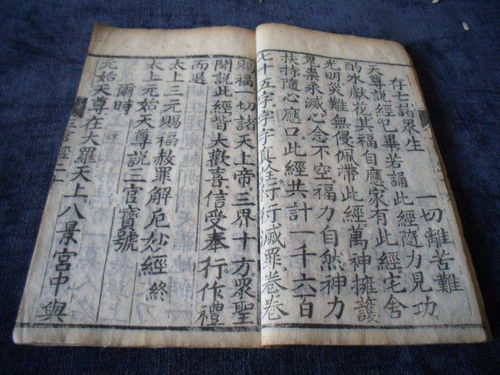 存亡諸眾生　一切離苦難
天尊說經已畢若誦此經隨力見功
酌水獻花其福自應家有此經宅舍
光明災難無侵佩帶此經萬神擁護
罪業永滅心念不空福力自然神力
扶持隨心應口此經共計一千六百
七十五字字字真詮行行滅罪卷卷
賜福一切諸天上帝三界十方眾聖
聞說此經皆大歡喜信受奉行作禮
而退
太上三元賜福赦罪解厄妙經終
太上元始天尊說三官寶號
爾時
元始天尊在大羅天上八景宮中與